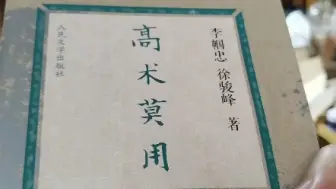 高术莫用
李帼忠 徐骏峰 著
人民文学出版社